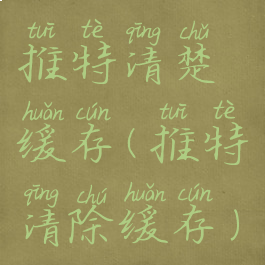 tuī tè qīng chǔ
推特清楚
huǎn cún tuī tè
缓存(推特
qīng chú huǎn cún
清除缓存)